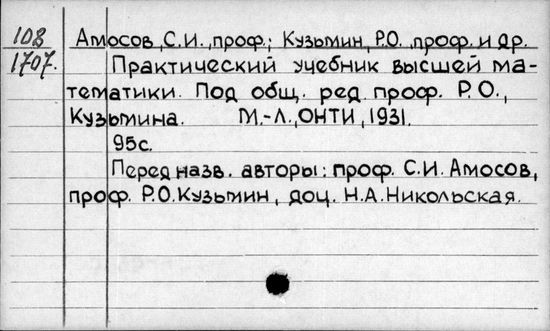 108
1707.
Амосов, С.И., проф.; Кузьмин, Р.О., проф. и др.
Практический учебник высшей ма-
тематики. Под общ. ред. проф. Р.О.,
Кузьмина. М.-Л., ОНТИ, 1931.
95с.
Перед назв. авторы: проф. С.И. Амосов,
проф. Р.О. Кузьмин, доц. Н.А. Никольская.